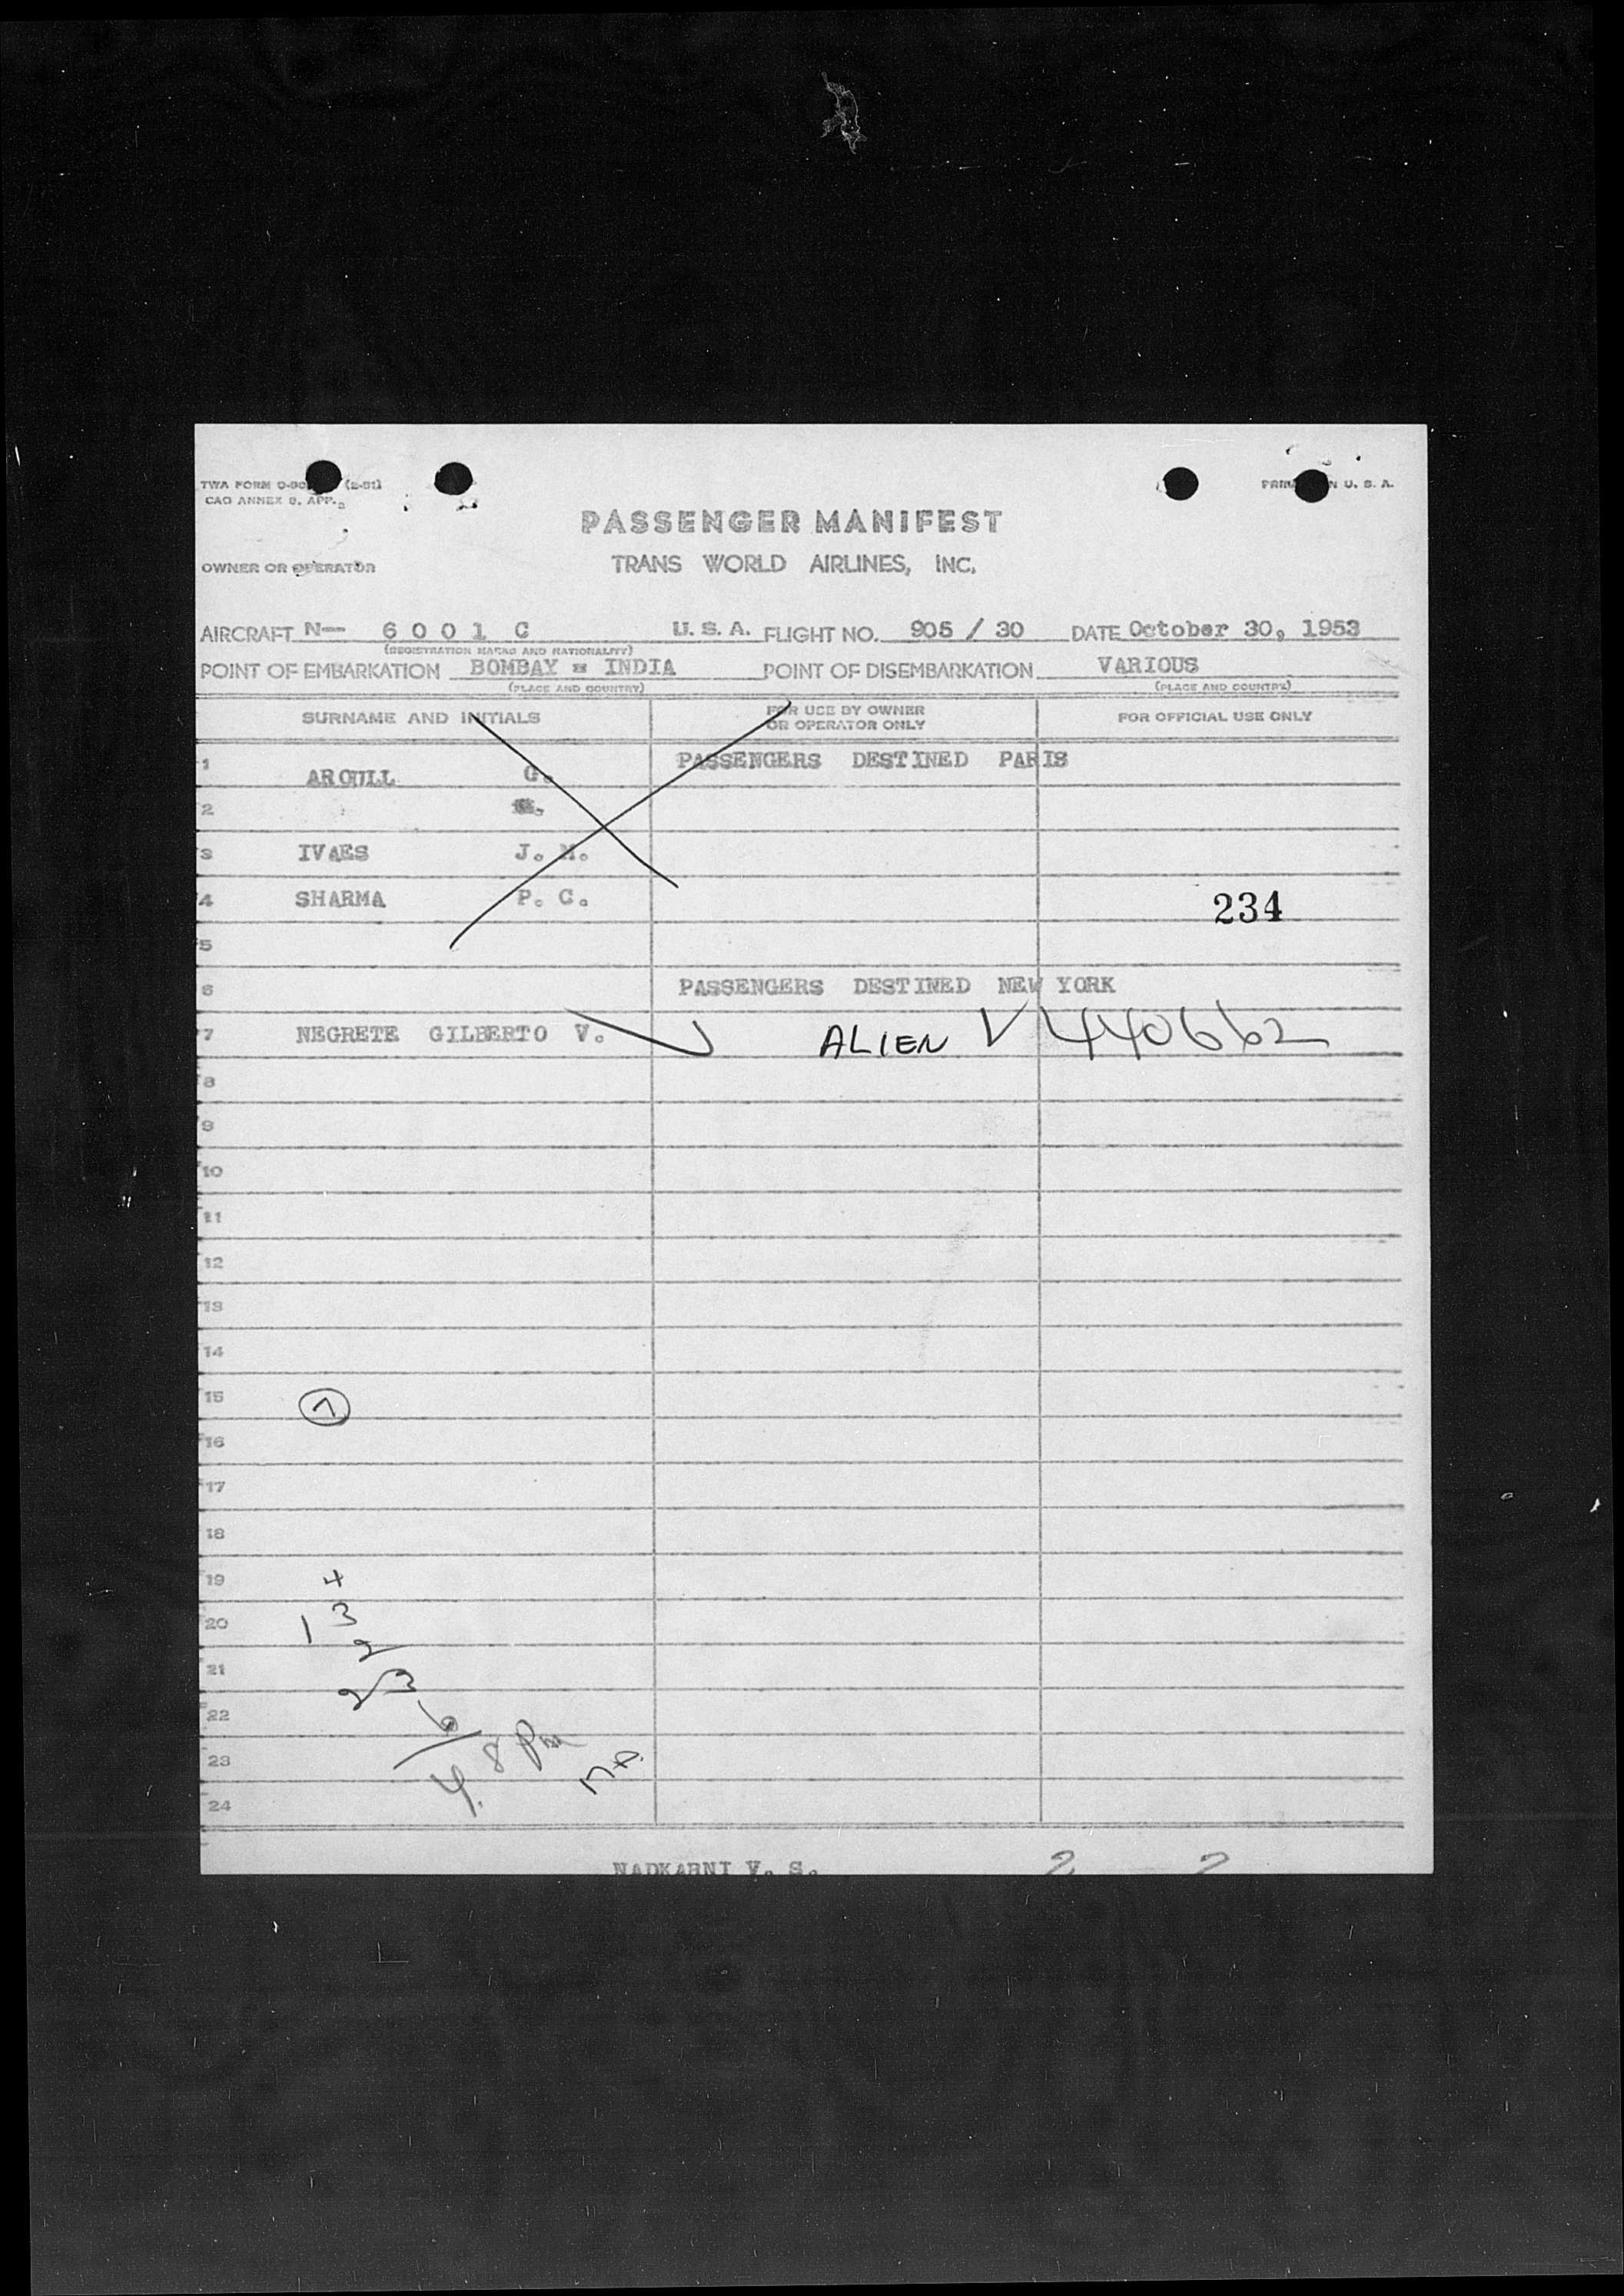 TWA FORM O-80 (2-51)
PRIN N U. S. A.
CAO ANNEX 9, APP. 2
PASSENGER MANIFEST
OWNER OR OPERATOR TRANS WORLD AIRLINES, INC.
AIRCRAFT N- 6001 C U. S. A. FLIGHT NO. 905 / 30 DATE October 30, 1953
(REGISTRATION MARKS AND NATIONALITY)
POINT OF EMBARKATION BOMBAY = INDIA POINT OF DISEMBARKATION VARIOUS
(PLACE AND COUNTRY) (PLACE AND COUNTRY)
SURNAME AND INITIALS FOR USE BY OWNER OR OPERATOR ONLY FOR OFFICIAL USE ONLY
1 ARGULL G. PASSENGERS DESTINED PARIS
2
3 IVAES J. M.
4 SHARMA P. C. 234
5
6 PASSENGERS DESTINED NEW YORK
7 NEGRETE GILBERTO V. ALIEN V 440662
8
9
10
11
12
13
14
15
16
17
18
19 4
20 1 3
2
21
23
22 6
23 4. 8 Pm
24
NADKARNI V. S. 2 2